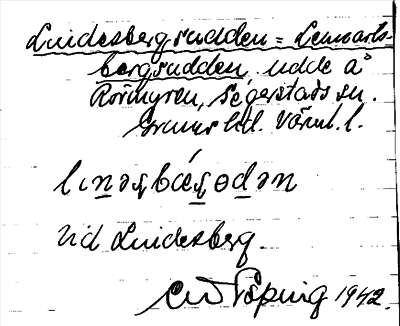 Lindesbergsudden = Lennarts-
bergsudden, udde å
Rörmyren, Segerstads sn.
Grums hd. Värml. l.
lınəʂbǽʂɵdən
Vid Lindesberg.
Köping 1942.